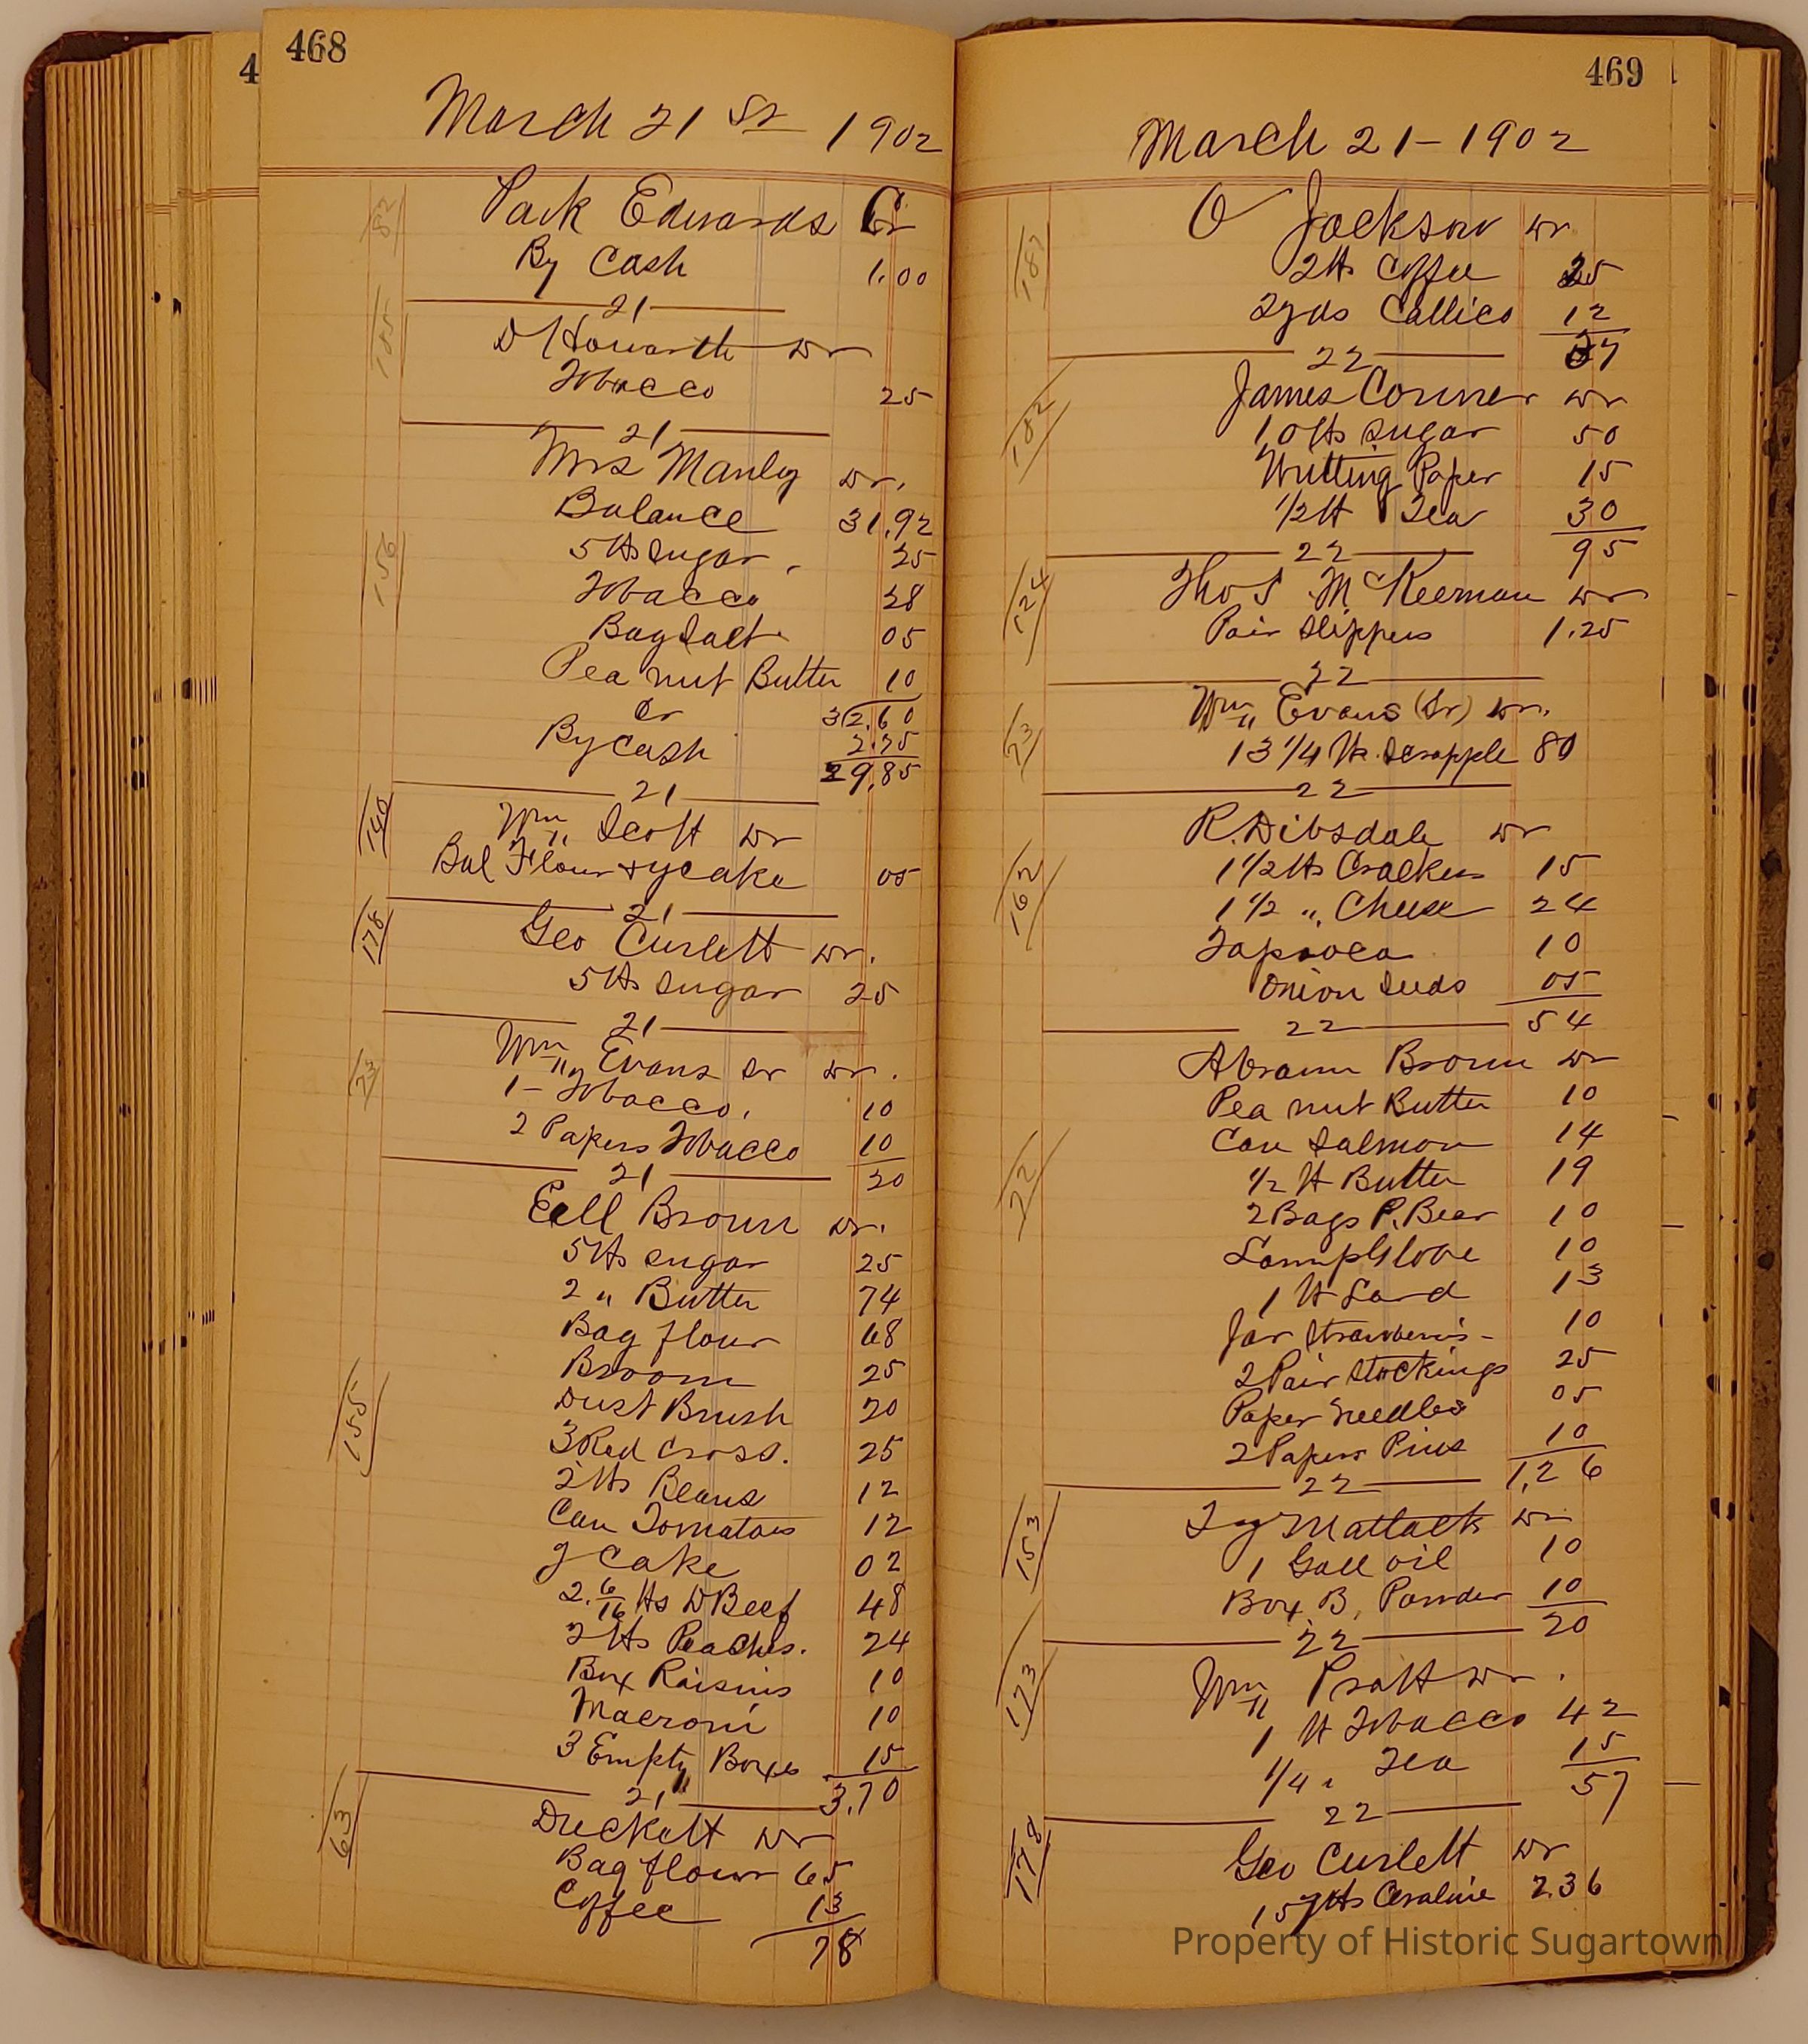 4
468
March 21 st 1902
82
Park Edwards Cr
By Cash 1.00
21
105
D Howarth Dr
Tobacco 25
21
Mrs Manley Dr.
Balance 31.92
156
5 lbs Sugar 25
Tobacco 28
Bag Salt 05
Pea nut Butter 10
Cr 32.60
By Cash 2.75
29.85
21
140
Wm Scott Dr
Bal Flour & y cake 05
21
178
Geo Curlett Dr.
5 lbs Sugar 25
21
73
Wm Evans Sr Dr.
1 - Tobacco. 10
2 Papers Tobacco 10
21 20
Ell Brown Dr.
5 lbs Sugar 25
2 " Butter 74
Bag flour 68
Broom 25
155
Dust Brush 20
3 Red Cross. 25
2 lbs Beans 12
Can Tomatoes 12
y Cake 02
2. 6/16 lbs D Beef 48
2 lbs Peaches. 24
Box Raisins 10
Macroni 10
3 Empty Boxes 15
21 3.70
63
Duckett Dr
Bag flour 65
Coffee 13
78
469
March 21 - 1902
187
O Jackson Dr
2 lb Coffee 25
2 yds Callico 12
22 37
182
James Conner Dr
10 lbs Sugar 50
Writting Paper 15
1/2 lb Tea 30
22 95
124
Thos McKeeman Dr
Pair Slippers 1.25
22
73
Wm Evans (Sr) Dr.
13 1/4 lb. Scrapple 80
22
R. Dibsdale Dr
162
1 1/2 lbs Crackers 15
1 1/2 " Cheese 24
Tapioca 10
Onion Seeds 05
22 54
Abram Brown Dr
Pea nut Butter 10
Can Salmon 14
72
1/2 lb Butter 19
2 Bags P. Bear 10
Lamp Glove 10
1 lb Lard 13
Jar Strawberris 10
2 Pair Stockings 25
Paper Needles 05
2 Papers Pins 10
22 1,26
153
Mattack Dr
1 Gall oil 10
Box B. Powder 10
22 20
173
Wm Pratt Dr.
1 lb Tobacco 42
1/4 " Tea 15
22 57
178
Geo Curlett Dr
157 lbs Ceraline 2.36
Property of Historic Sugartown